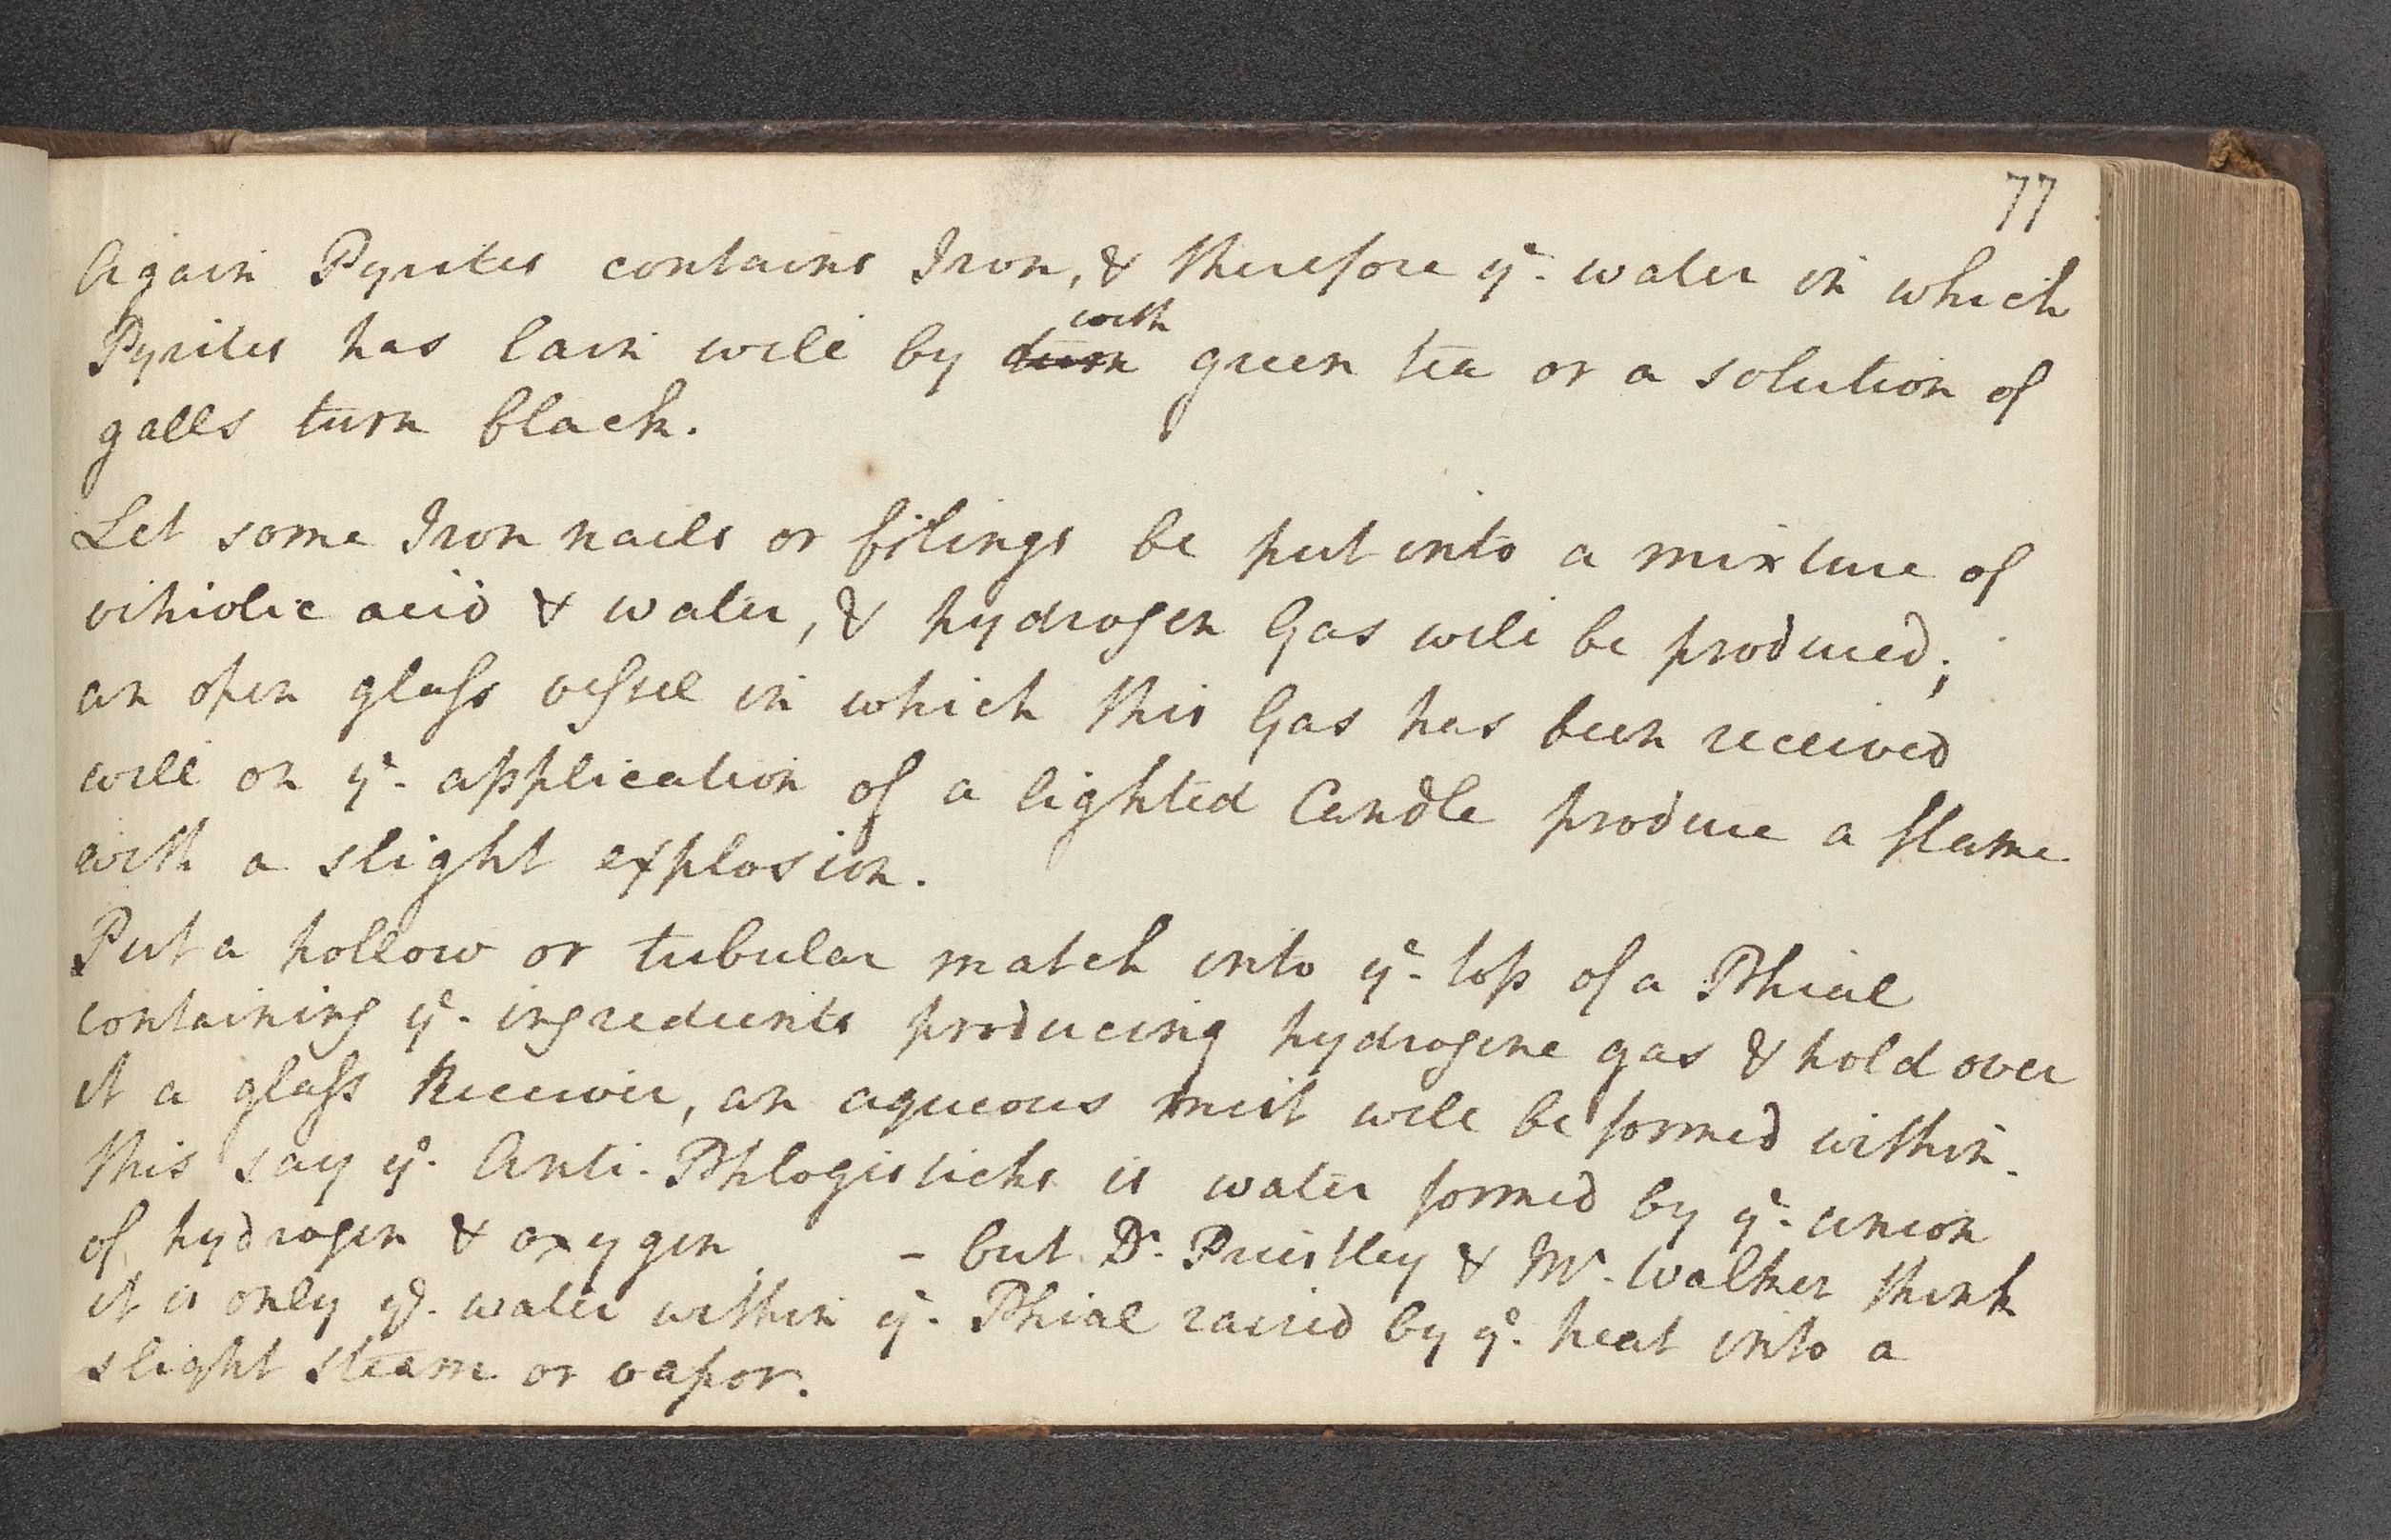 77
Again Pyrites contains Iron, & therefore yᵉ. water in which
Pyrites has lain will by ~~turn~~ with green tea or a solution of
galls turn black.
Let some Iron nails or filings be put into a mixture of
vitriolic acid & water, & hydrogen Gas will be produced;
an open glass vessel in which this Gas has been received
will on yᵉ. application of a lighted Candle produce a flame
with a slight explosion.
Put a hollow or tubular match into yᵉ. top of a Phial
containing yᵉ. ingredients producing hydrogene gas & hold over
it a glass Receiver, an aqueous mist will be formed within.
this say yᵉ. Anti-Phlogisticks is water formed by yᵉ. union
of hydrogen & oxygen. – but Dʳ. Priestley & Mʳ. Walker think
it is only yᵉ. water within yᵉ. Phial raised by yᵉ. heat into a
slight steam or vapor.